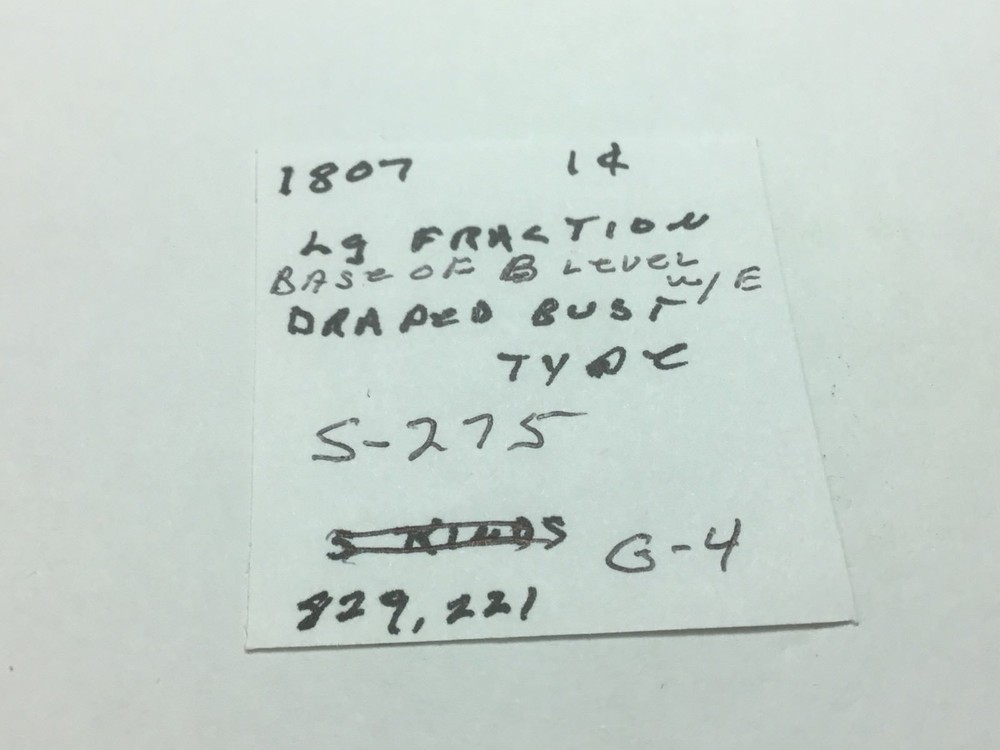 1807 1¢
Lg FRACTION
BASE OF B LEVEL
w/E
DRAPED BUST
TYPE
S-275
5 KINDS
G-4
829,221